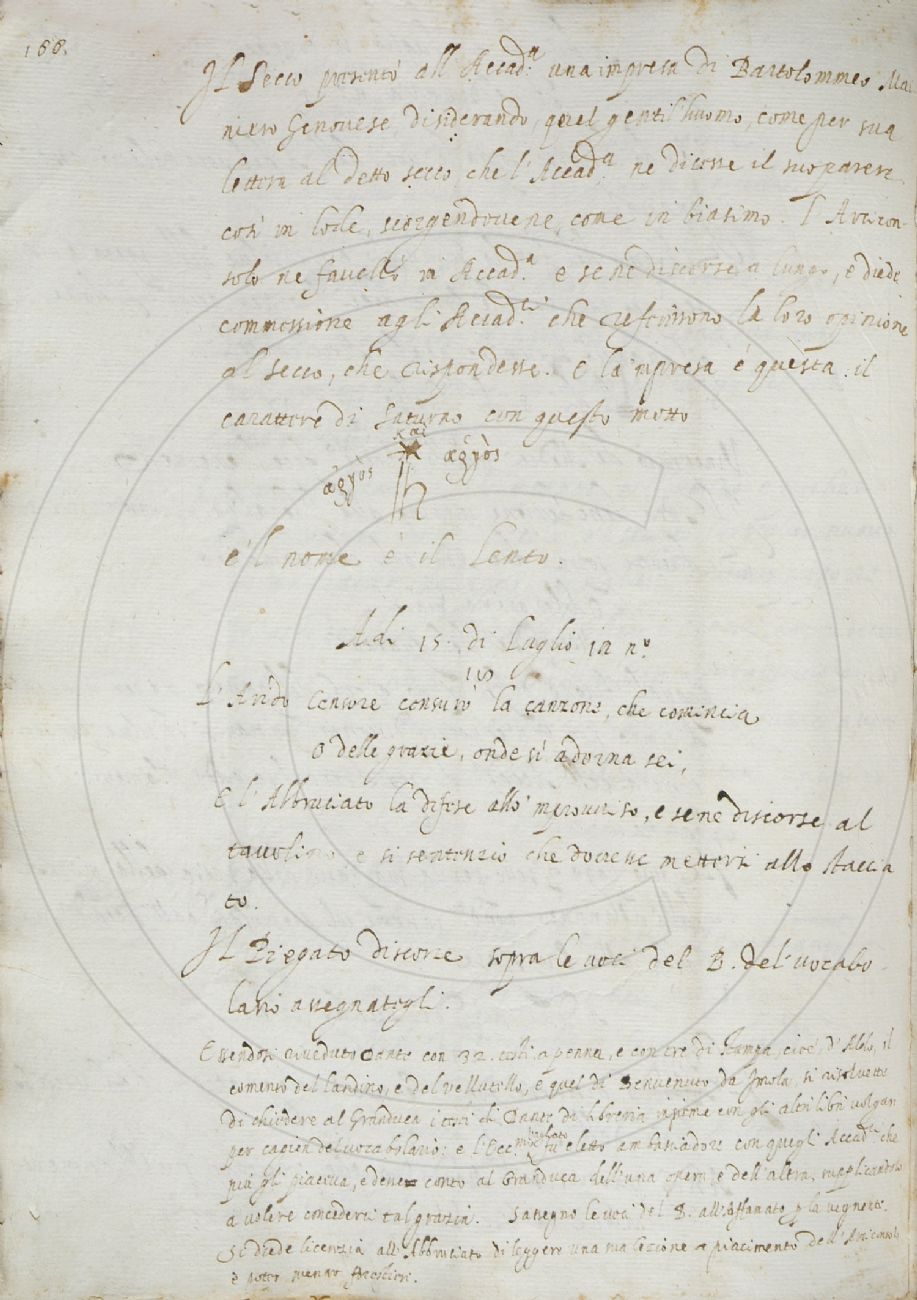 188.
Il Secco presentò all'Accad.ª una impresa di Bartolommeo Mai
nero Genovese, disiderando, quel gentil'huomo, come per sua
lettera al detto secco, che l'Accad.ª ne dicesse il suo parere
così in lode, scorgendovene, come in biasimo. l'Arcicon-
solo ne favellò in Accad.ª e se ne discorse a lungo, e diede
commessione agli Accad.ci che
la loro opinione
al secco, che rispondesse. e la 'mpresa é questa: il
carattere di Saturno con questo motto
καὶ
ἀργὸς
ἀργὸς
e 'l nome è il Lento.
Adi 15. di Luglio in n.º
L'Arido Censore censurò la canzone, che comincia
O delle grazie, onde si adorna sei,
E l'Abbruciato la difese allo 'mprouuiso, e se ne discorse al
tauolino e si sentenziò che douesse mettersi allo staccia
to.
Il Piegato discorse sopra le uoci del B. del uocabo
lario assegnategli.
Essendosi riueduto Dante con 32. testi a penna, e con tre di stampa, cioé, d'Aldo, il
comento del landino, e del uellutello, e quel di Benuenuto da Imola, si risoluette
di chiedere al Granduca i testi di Dante di libreria insieme con gli altri libri uolgari
per cagion del uocabolario: e l'Ecc.
fu eletto ambasciadore con quegli Accad.ci che
piu gli piaceua, e desse conto al Granduca dell'una opera e dell'altra, supplicandolo
a uolere concederci tal grazia. S'assegnò le uoci del B. all'Affannato p la uegnente.
Si diede licenzia all'Abbruciato di leggere una sua lezione a piacimento dell'Arciconsolo
e poter menar forestieri.